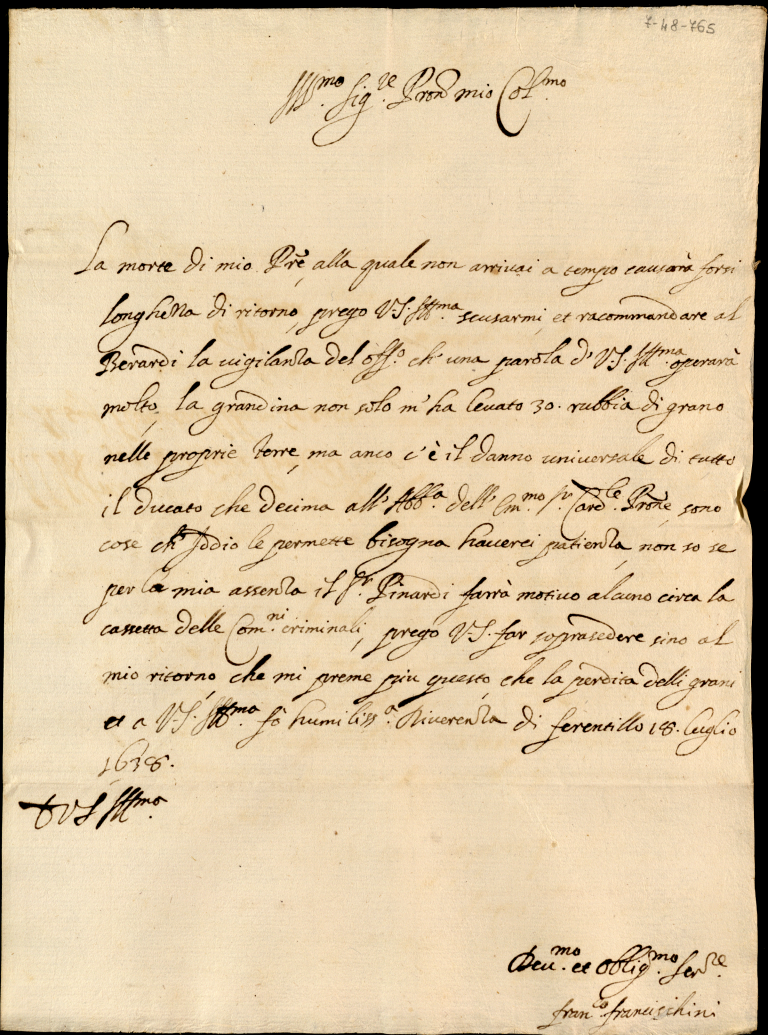 7-48-765
Ill.mo Sig.re Pron mio Col.mo
La morte di mio Pre, alla quale non arrivai a tempo causarà forsi
longhezza di ritorno, prego V.S. Ill.ma scusarmi, et racommandare al
Berardi la vigilanza del off.o ch'una parola d'V.S. Ill.ma operarà
molto, la grandina non solo m'ha levato 30. rubbia di grano
nelle proprie terre, ma anco c'è il danno universale di tutto
il Ducato che decima all'Abb.a dell'Em.mo S.r Card.le Prone, sono
cose ch'Iddio le permette bisogna haverci patienza, non so se
per la mia assenza il S.r Pinardi farrà motivo alcuno circa la
cassetta delle Com.ni criminali, prego V.S. far soprasedere sino al
mio ritorno che mi preme piu questo, che la perdita delli grani
et a V.S. Ill.ma fò humiliss.a Riverenza di ferentillo 18. luglio
1638.
D V S Ill.ma
Dev.mo et Oblig.mo Ser.re
fran.co francischini